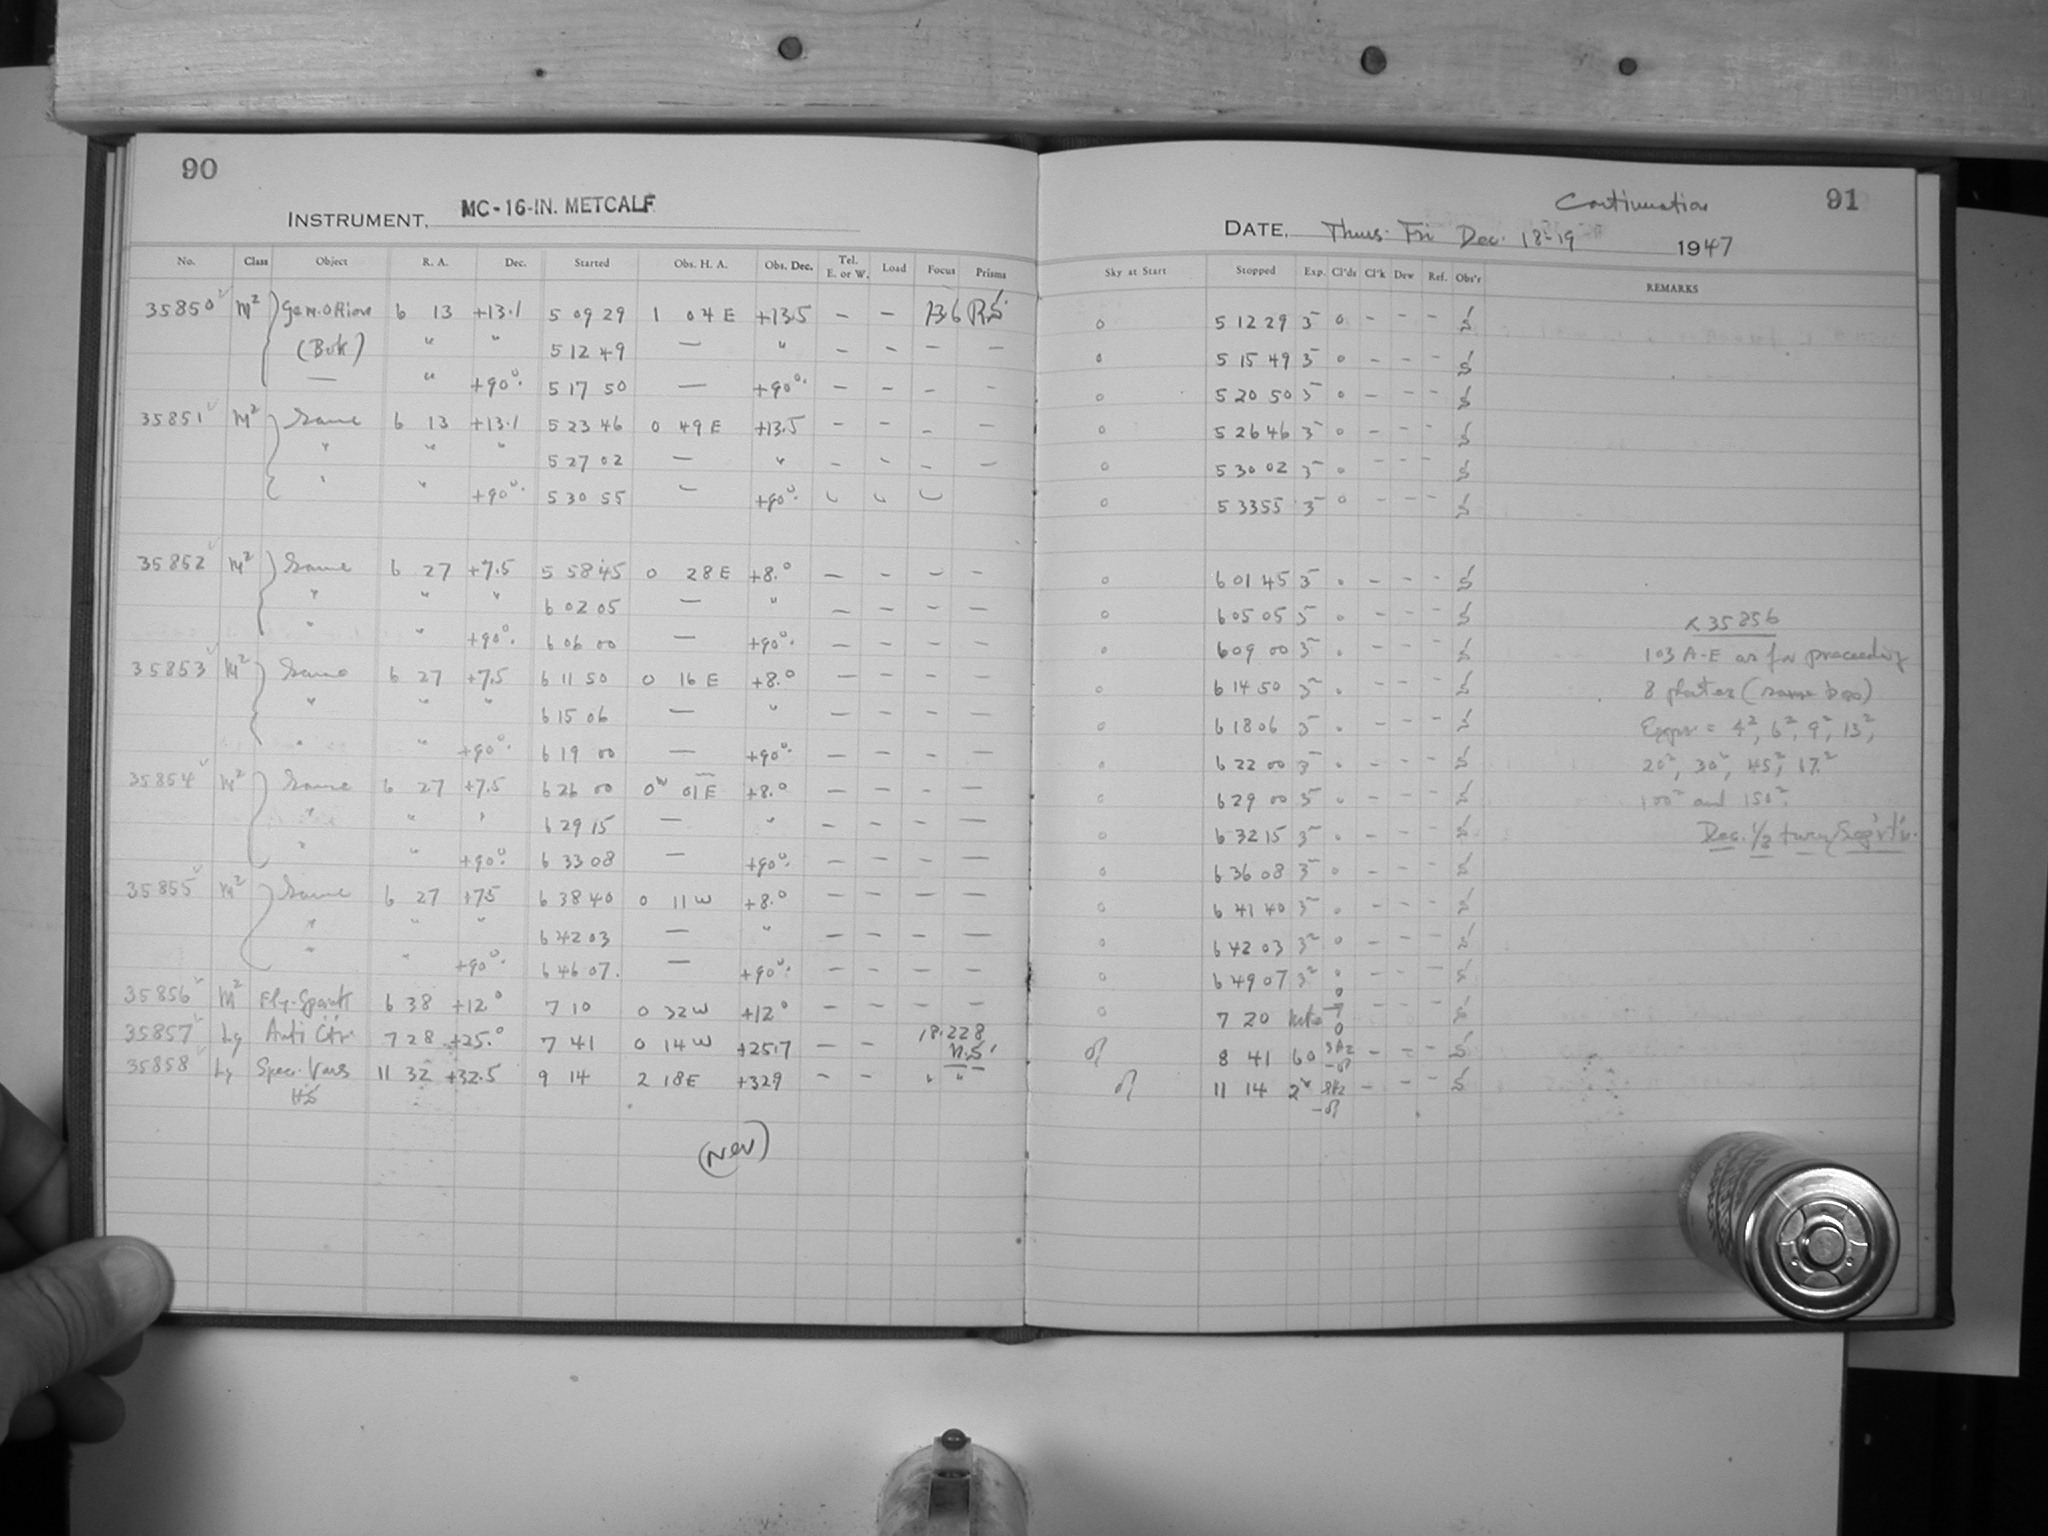 90
INSTRUMENT, MC-16-IN. METCALF
No. Class Object R. A. Dec. Started Obs. H. A. Obs. Dec. Tel. E. or W. Load Focus Prisms
35850 M² Gem. Orion 6 13 +13.1 5 09 29 1 04 E +13.5 — — 13.6 R.S.
(Bok) " " 5 12 49 — " — — — —
— " +90°. 5 17 50 — +90°. — — — —
35851 M² Same 6 13 +13.1 5 23 46 0 49 E +13.5 — — — —
" " " 5 27 02 — " — — — —
" " +90°. 5 30 55 — +90°.
35852 M² Same 6 27 +7.5 5 58 45 0 28 E +8.° — — — —
" " " 6 02 05 — " — — — —
" " +90°. 6 06 00 — +90°. — — — —
35853 M² Same 6 27 +7.5 6 11 50 0 16 E +8.° — — — —
" " " 6 15 06 — " — — — —
" " +90°. 6 19 00 — +90°. — — — —
35854 M² Same 6 27 +7.5 6 26 00 0 01 E +8.° — — — —
" " " 6 29 15 — " — — — —
" " +90°. 6 33 08 — +90°. — — — —
35855 M² Same 6 27 +7.5 6 38 40 0 11 W +8.° — — — —
" " " 6 42 03 — " — — — —
" " +90°. 6 46 07. — +90°. — — — —
35856 M² 6 38 +12° 7 10 0 32 W +12° — — — —
35857 Lg Anti Ctr 7 28 +25.° 7 41 0 14 W +25.7 — — 18.228
35858 Lg Spec. Vars 11 32 +32.5 9 14 2 18 E +32.9 — — " "
(Nev)
Continuation 91
DATE, Thurs. Fri Dec. 18-19 1947
Sky at Start Stopped Exp. Cl'ds Cl'k Dew Ref. Obs'r REMARKS
0 5 12 29 3 0 - - - S
0 5 15 49 3 0 - - - S
0 5 20 50 3 0 - - - S
0 5 26 46 3 0 - - - S
0 5 30 02 3 0 - - - S
0 5 33 55 3 0 - - - S
0 6 01 45 3 0 - - - S
0 6 05 05 3 0 - - - S
0 6 09 00 3 0 - - - S
0 6 14 50 3 0 - - - S
0 6 18 06 3 0 - - - S
0 6 22 00 3 0 - - - S
0 6 29 00 3 0 - - - S
0 6 32 15 3 0 - - - S
0 6 36 08 3 0 - - - S
0 6 41 40 3 0 - - - S
0 6 42 03 3 0 - - - S
0 6 49 07 3 0 - - - S
0 7 20 - - - S
8 41 60 - - - S
11 14 2 - - - S
35856
103 A-E as for preceeding
8 plates (same box)
Exps = 4², 6², 9², 13²,
20², 30², 45², 17.²
100² and 150².
Dec. 1/2 turn